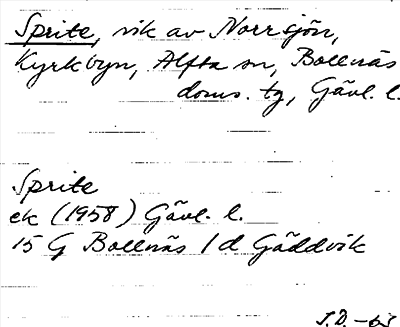 Sprite, vik av Norrsjön,
Kyrkbyn, Alfta sn, Bollnäs
doms. tg, Gävl. l.
Sprite
ek (1958) Gävl. l.
15 G Bollnäs 1 d Gäddvik
J.D. -63